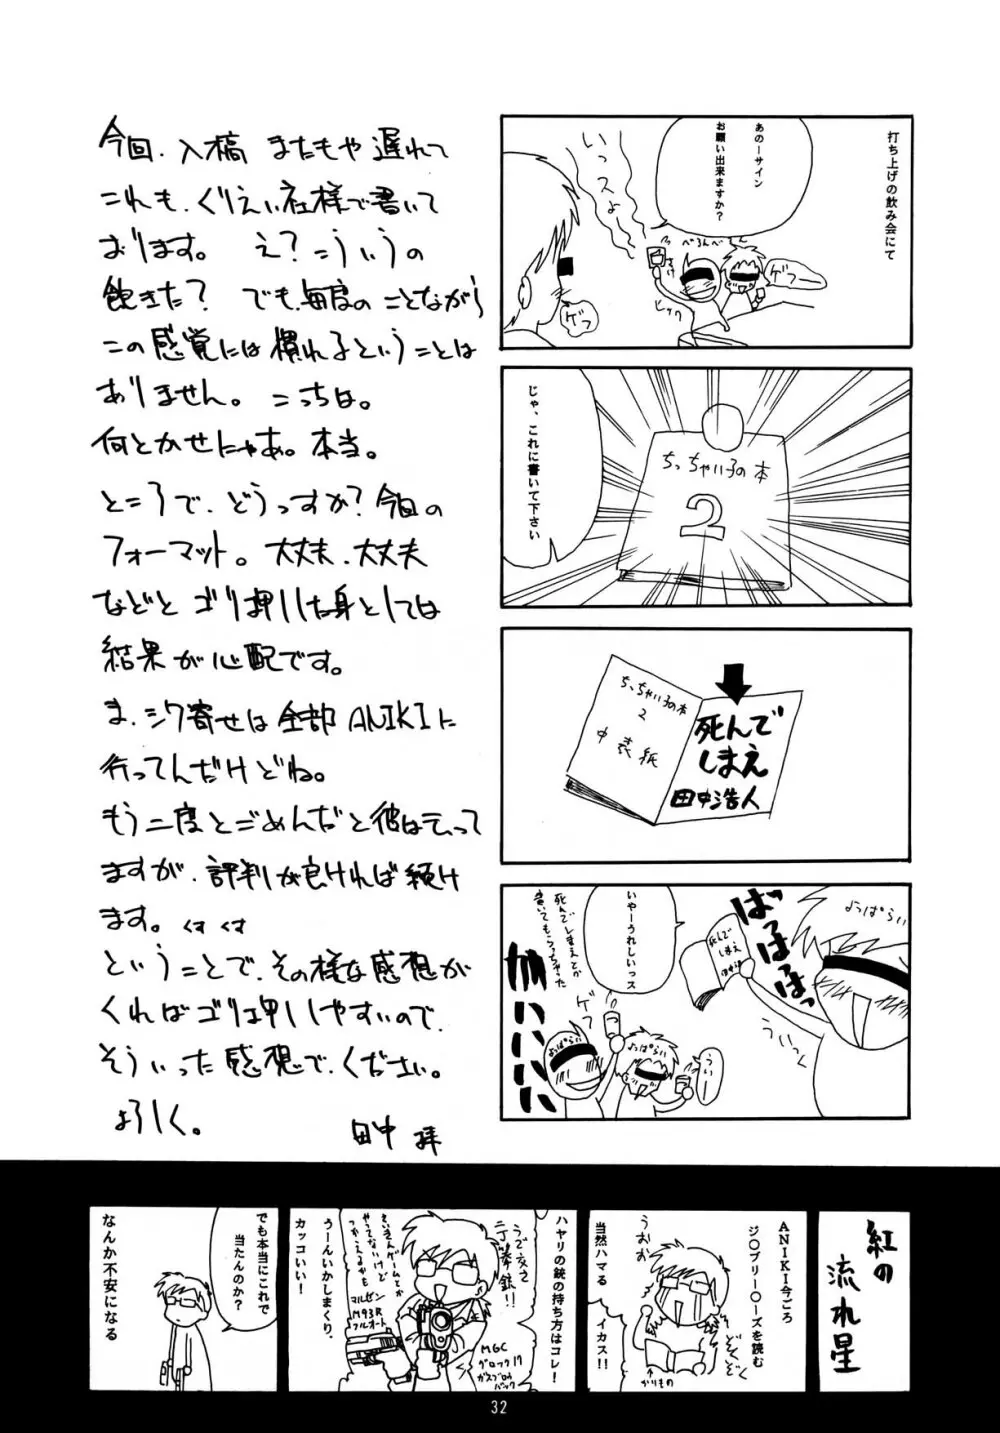 今回、入稿 またもや遅れて
これも、くりえい社様で書いて
おります。 え？こういうの
飽きた？ でも、毎度のことながら
この感覚には慣れるということは
ありません。こっちは。
何とかせにゃあ。本当。
ところで、どうっすか？今回の
フォーマット。大丈夫、大丈夫
などと ゴリ押しした身としては
結果が心配です。
ま、シワ寄せは全部ANIKIに
行ってんだけどね。
もう二度とごめんだと彼は云って
ますが、評判が良ければ続け
ます。くす くす
ということで、その様な感想が
くればゴリ押ししやすいので、
そういった感想で、ください。
よろしく。
田中 拝
打ち上げの飲み会にて
あのーサイン
お願い出来ますか？
いっスよ
べろんべ
ゲフー
さけ
ヒック
ゲフ
じゃ、これに書いて下さい
ちっちゃい子の本
2
ちっちゃい子の本
2
中表紙
死んで
しまえ
田中浩人
よっぱらい
ばっはっはっはっ
死んで
しまえ
田中浩
ういっく
いやーうれしいっス
死んでしまえとか
書いてもらっちゃった
ゲフ
よっぱらい
よっぱらい
ういー
紅の
流れ星
ANIKI今ごろ
ジ〇ブリー〇ーズを読む
うおお
ぞくぞく
↑かりもの
当然ハマる
イカス!!
ハヤリの銃の持ち方はコレ！
うで交さ
二丁拳銃!!
さいきんゲームとか
やってないけど
つかえるかも
マルゼン
M93R
フルオート
MGC
グロック17
ガスブロウ
バック
うーんいかしまくり、
カッコいい！
でも本当にこれで
当たんのか？
なんか不安になる
32